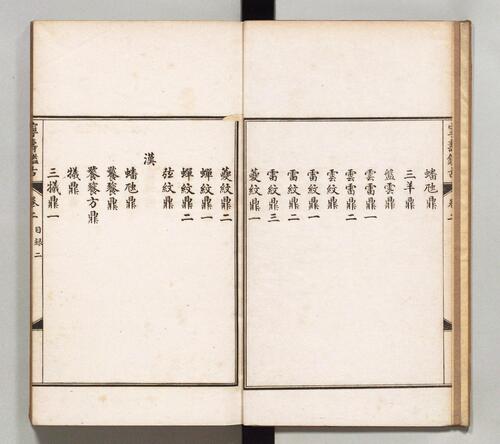 寧壽鑑古 卷二
蟠虺鼎
三羊鼎
盤雲鼎
雲雷鼎一
雲雷鼎二
雲紋鼎
雷紋鼎一
雷紋鼎二
雷紋鼎三
夔紋鼎一
夔紋鼎二
蟬紋鼎一
蟬紋鼎二
弦紋鼎
漢
蟠虺鼎
饕餮鼎
饕餮方鼎
犧鼎
三犧鼎一
寧壽鑑古 卷二 目錄 二